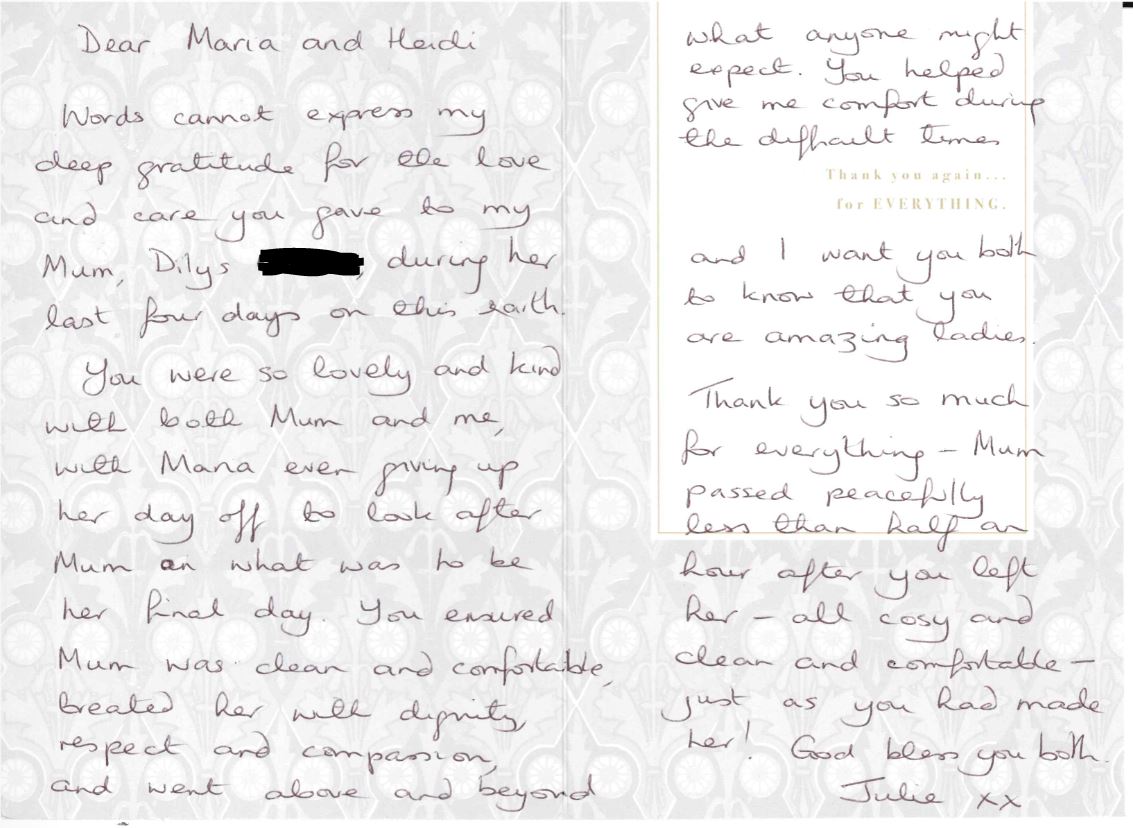 Dear Maria and Heidi
Words cannot express my
deep gratitude for the love
and care you gave to my
Mum, Dilys , during her
last four days on this earth.
You were so lovely and kind
with both Mum and me,
with Maria even giving up
her day off to look after
Mum on what was to be
her final day. You ensured
Mum was clean and comfortable,
treated her with dignity,
respect and compassion,
and went above and beyond
what anyone might
expect. You helped
give me comfort during
the difficult times
Thank you again...
for EVERYTHING.
and I want you both
to know that you
are amazing ladies.
Thank you so much
for everything – Mum
passed peacefully
less than half an
hour after you left
her – all cosy and
clean and comfortable –
just as you had made
her! God bless you both.
Julie xx